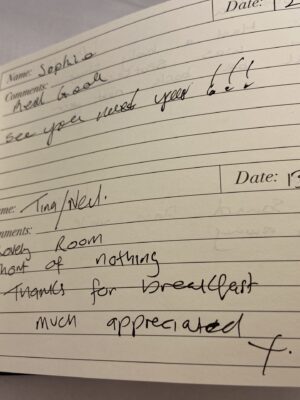 Date: 2
Name: Sophia
Comments:
Real Good
see you next year !!!
Date: 13
me: Tina/Neil.
mments:
ovely Room
hort of nothing
Thanks for breakfast
much appreciated
x.